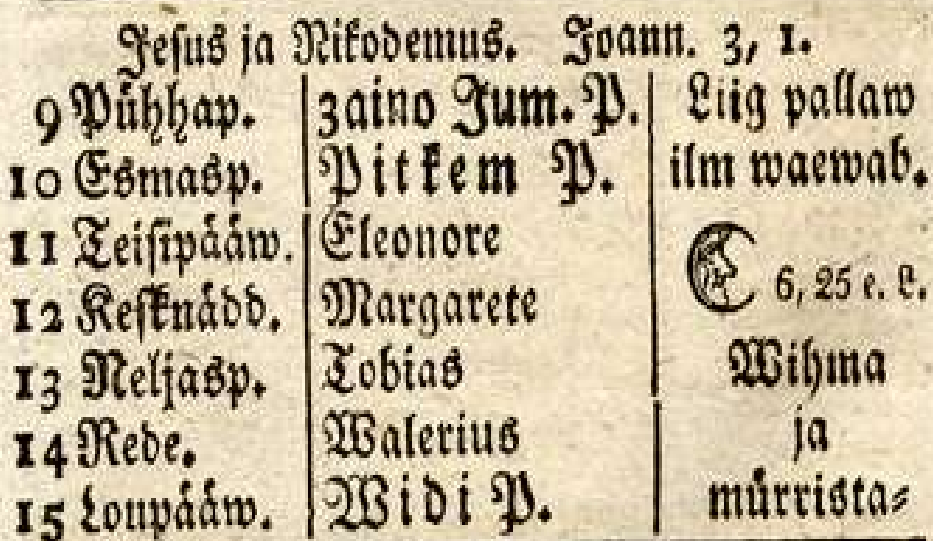 Jesus ja Nikodemus. Joann. 3, 1.
9 Pühhap. 3aino Jum. P. Liig pallaw
10 Esmasp. Pitkem P. ilm waewab.
11 Teisipääw. Eleonore
12 Kesknädd. Margarete 6, 25 e. L.
13 Neljasp. Tobias Wihma
14 Rede. Walerius ja
15 Loupääw. Widi P. mürrista⸗